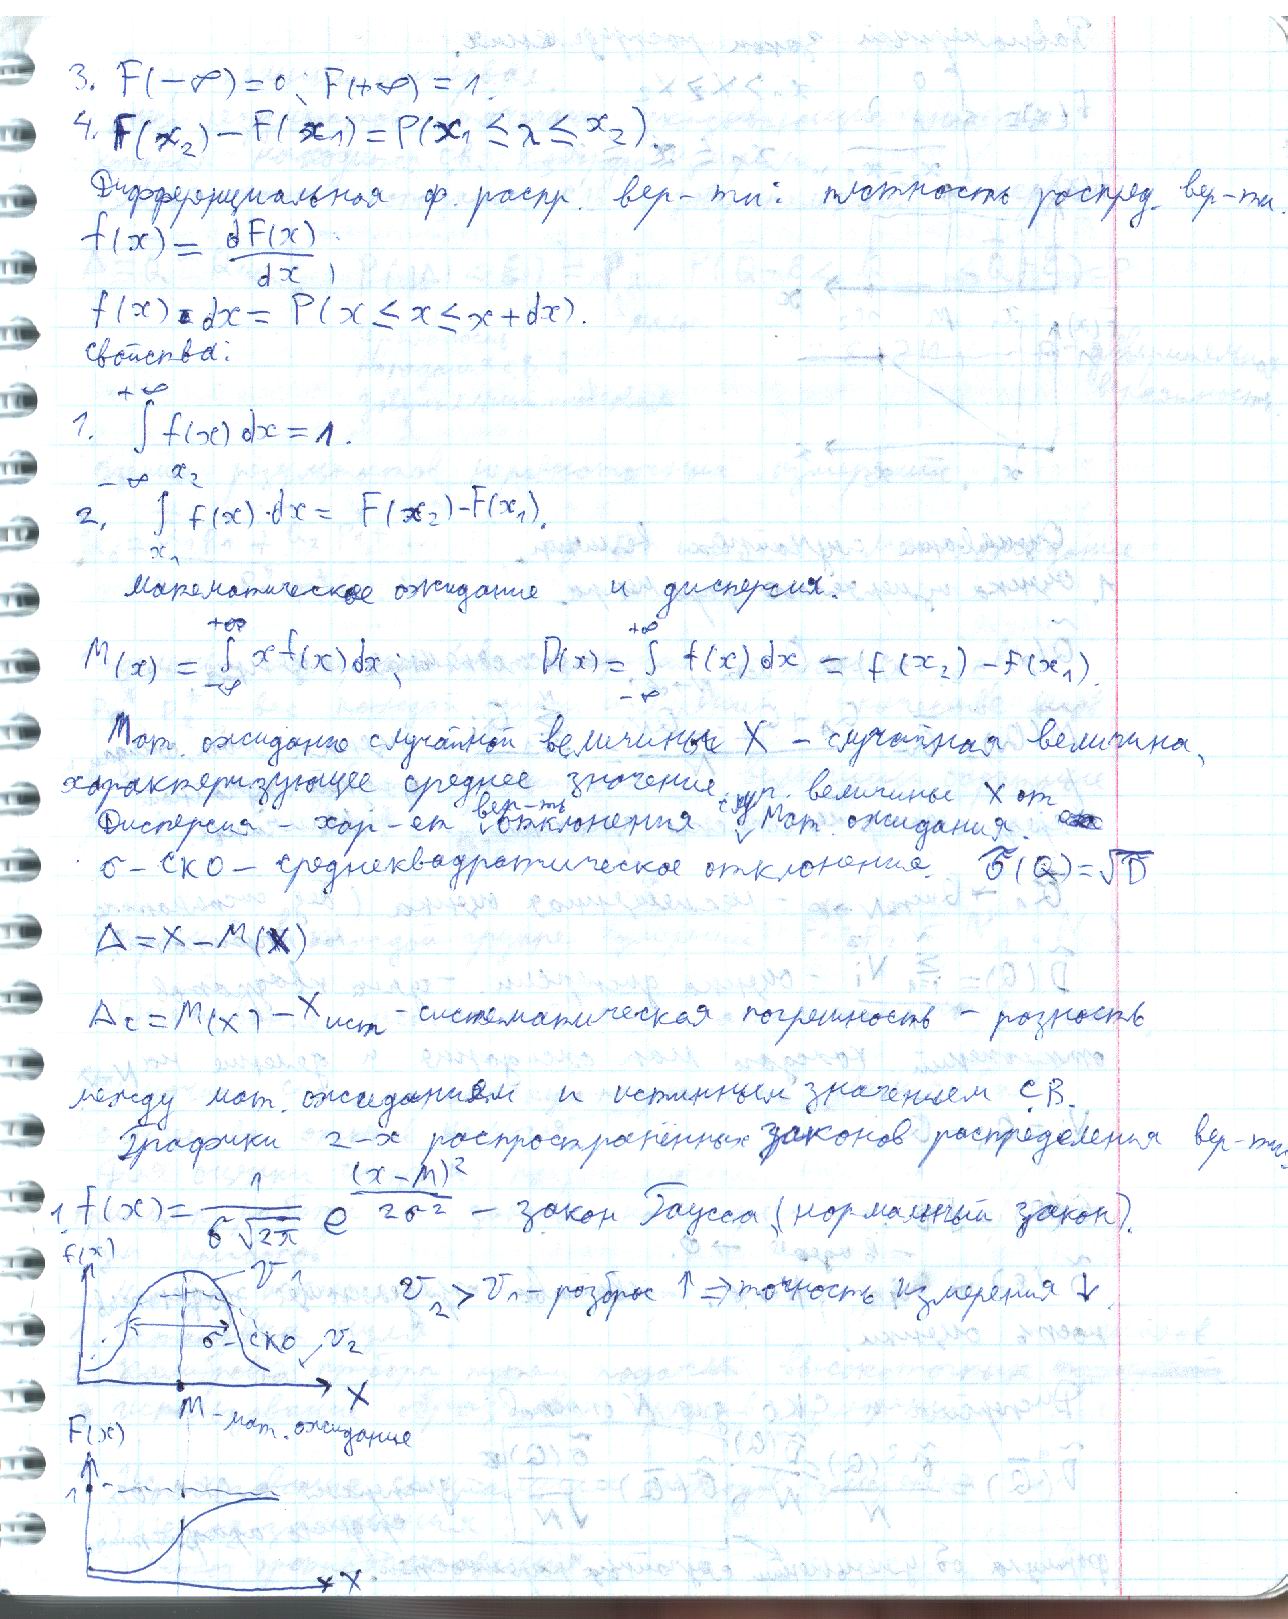 3. F(-∞)=0; F(+∞)=1.
4. F(x₂)-F(x₁)=P(x₁≤x≤x₂).
Дифференциальная ф. распр. вер-ти: плотность распред. вер-ти.
f(x)= dF(x)/dx;
f(x)·dx= P(x≤x≤x+dx).
Свойства:
1. ∫_{-∞}^{+∞} f(x)dx=1.
2. ∫_{x₁}^{x₂} f(x)·dx= F(x₂)-F(x₁).
Математическое ожидание и дисперсия.
M(x)=∫_{-∞}^{+∞} xf(x)dx; D(x)=∫_{-∞}^{+∞} f(x)dx = f(x₂)-F(x₁).
Мат. ожидание случайной величины X - случайная величина,
характеризующее среднее значение сл. величины X от
Дисперсия - хар-ет вер-ть отклонения Мат. ожидания.
σ - СКО - среднеквадратическое отклонение. σ̃(Q)=√D
Δ=X-M(X)
Δс=M(X)-Xист - систематическая погрешность - разность
между мат. ожиданием и истинным значением СВ.
Графики 2-х распространённых законов распределения вер-ти:
1. f(x)= 1/(σ√2π) e^{(x-M)²/2σ²} - закон Гаусса (нормальный закон).
f(x)
σ₁
σ₂>σ₁ - разброс ↑ ⇒ точность измерения ↓.
σ-СКО σ₂
X
M - мат. ожидание
F(x)
1
X.